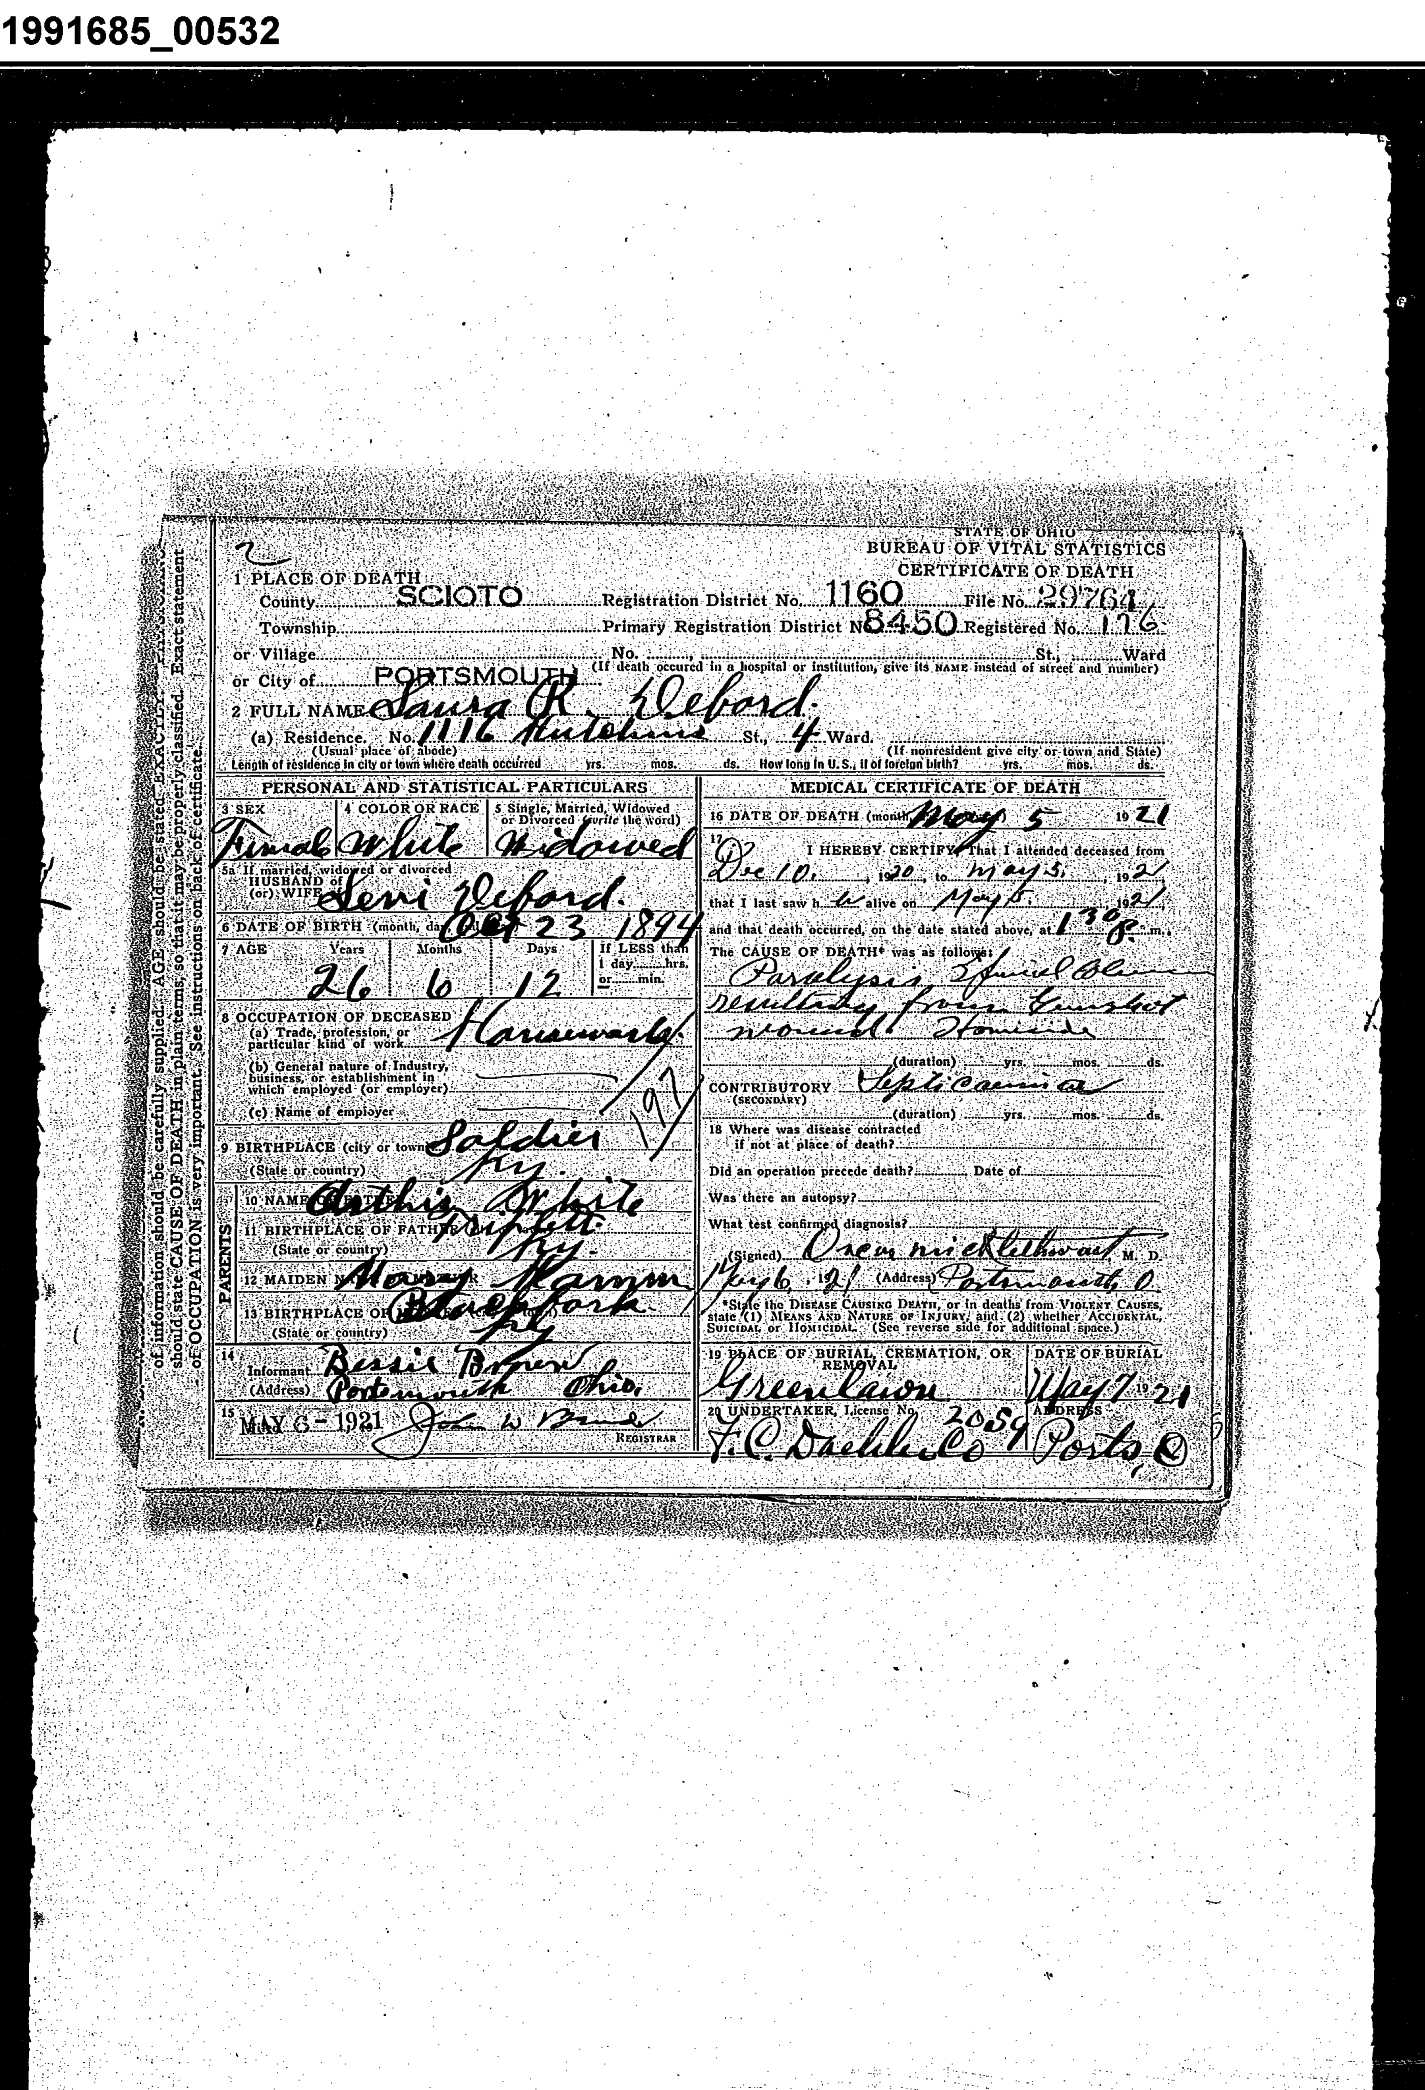 1991685_00532
2
STATE OF OHIO
BUREAU OF VITAL STATISTICS
CERTIFICATE OF DEATH
1 PLACE OF DEATH
County SCIOTO Registration District No. 1160 File No. 29764
Township Primary Registration District No. 8450 Registered No. 176
or Village No. , St., Ward
(If death occured in a hospital or institution, give its NAME instead of street and number)
or City of PORTSMOUTH
2 FULL NAME Laura R. Debord.
(a) Residence. No. 1116 Hutchins St., 4 Ward.
(Usual place of abode) (If nonresident give city or town and State)
Length of residence in city or town where death occurred yrs. mos. ds. How long in U. S., if of foreign birth? yrs. mos. ds.
PERSONAL AND STATISTICAL PARTICULARS
3 SEX 4 COLOR OR RACE 5 Single, Married, Widowed
or Divorced (write the word)
Female White Widowed
5a If married, widowed or divorced
HUSBAND of
(or) WIFE of Levi Debord.
6 DATE OF BIRTH (month, day Oct 23 1894
7 AGE Years Months Days If LESS than
1 day hrs.
26 6 12 or min.
8 OCCUPATION OF DECEASED
(a) Trade, profession, or
particular kind of work Housework.
(b) General nature of Industry,
business, or establishment in
which employed (or employer)
(c) Name of employer
197
9 BIRTHPLACE (city or town) Soldier
(State or country) Ky.
PARENTS
10 NAME OF FATHER White
11 BIRTHPLACE OF FATHER
(State or country) Ky.
12 MAIDEN NAME OF MOTHER Mary Hamm
13 BIRTHPLACE OF MOTHER
(State or country) Ky
14
Informant Bessie
(Address) Portsmouth Ohio.
15 MAY 6 - 1921 John W
REGISTRAR
MEDICAL CERTIFICATE OF DEATH
16 DATE OF DEATH (month May 5 1921
17
I HEREBY CERTIFY, That I attended deceased from
Dec 10. , 1920, to May 5. , 1921
that I last saw h alive on May 5. 1921
and that death occurred, on the date stated above, at 130 P. m.
The CAUSE OF DEATH* was as follows:
Paralysis
resulting from Gunshot
wound Homicide
(duration) yrs. mos. ds.
CONTRIBUTORY Septicaemia
(SECONDARY)
(duration) yrs. mos. ds.
18 Where was disease contracted
if not at place of death?
Did an operation precede death? Date of
Was there an autopsy?
What test confirmed diagnosis?
(Signed) Oren Micklethwait M. D.
May 6, 1921 (Address) Portsmouth, O
*State the DISEASE CAUSING DEATH, or in deaths from VIOLENT CAUSES,
state (1) MEANS AND NATURE OF INJURY, and (2) whether ACCIDENTAL,
SUICIDAL or HOMICIDAL. (See reverse side for additional space.)
19 PLACE OF BURIAL, CREMATION, OR DATE OF BURIAL
REMOVAL
Greenlawn May 7 1921
20 UNDERTAKER, License No. 2059 ADDRESS
F. C. Daehler Co Ports, O
of information should be carefully supplied. AGE should be stated EXACTLY.
should state CAUSE OF DEATH in plain terms, so that it may be properly classified. Exact statement
of OCCUPATION is very important. See instructions on back of certificate.